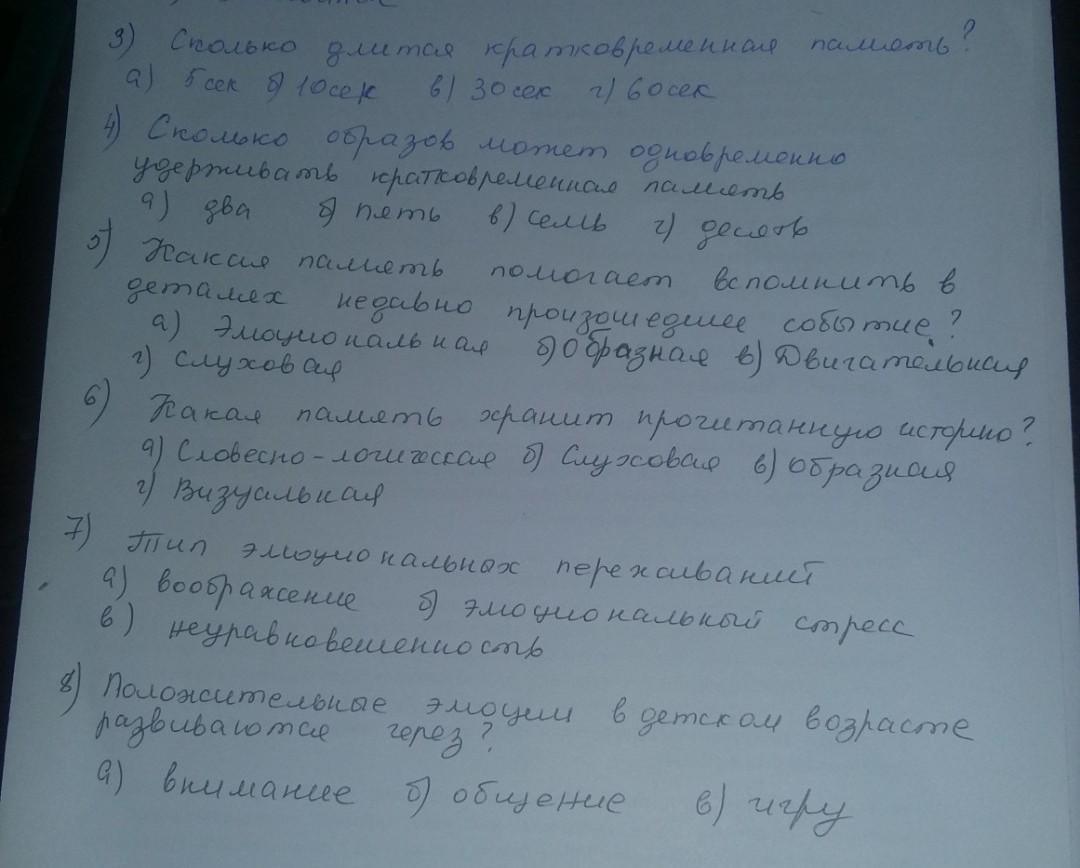 3) Сколько длится кратковременная память?
а) 5сек б) 10сек в) 30сек г) 60сек
4) Сколько образов может одновременно
удерживать кратковременная память
а) два б) пять в) семь г) десять
5) Какая память помогает вспомнить в
деталях недавно произошедшее событие?
а) Эмоциональная б) Образная в) Двигательная
г) Слуховая
6) Какая память хранит прочитанную историю?
а) Словесно-логическая б) Слуховая в) Образная
г) Визуальная
7) Тип эмоциональных переживаний
а) воображение б) эмоциональный стресс
в) неуравновешенность
8) Положительные эмоции в детском возрасте
развиваются через?
а) внимание б) общение в) игру